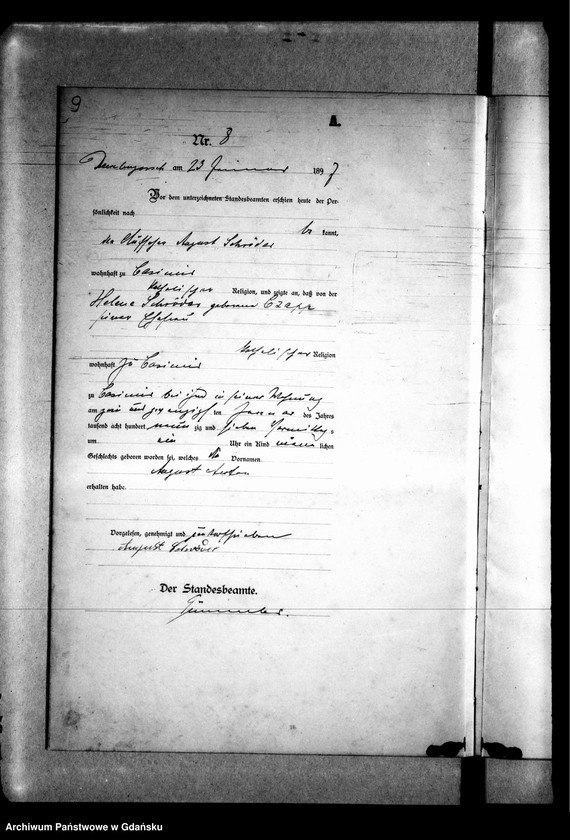 9
A.
Nr. 8
am 23 Januar 1897
Vor dem unterzeichneten Standesbeamten erschien heute der Per-
sönlichkeit nach
be kannt,
der August Schröder
wohnhaft zu Casimir
katholischer Religion, und zeigte an, daß von der
Helene Schröder geborenen Czapp
seiner Ehefrau
katholischer Religion
wohnhaft zu Casimir
zu Casimir bei ihm in seiner Wohnung
am zwei und zwanzigsten Januar des Jahres
tausend acht hundert neun zig und sieben Vormittags
um ein Uhr ein Kind männlichen
Geschlechts geboren worden sei, welches die Vornamen
August Anton
erhalten habe.
Vorgelesen, genehmigt und unterschrieben
August Schröder
Der Standesbeamte.
Archiwum Państwowe w Gdańsku